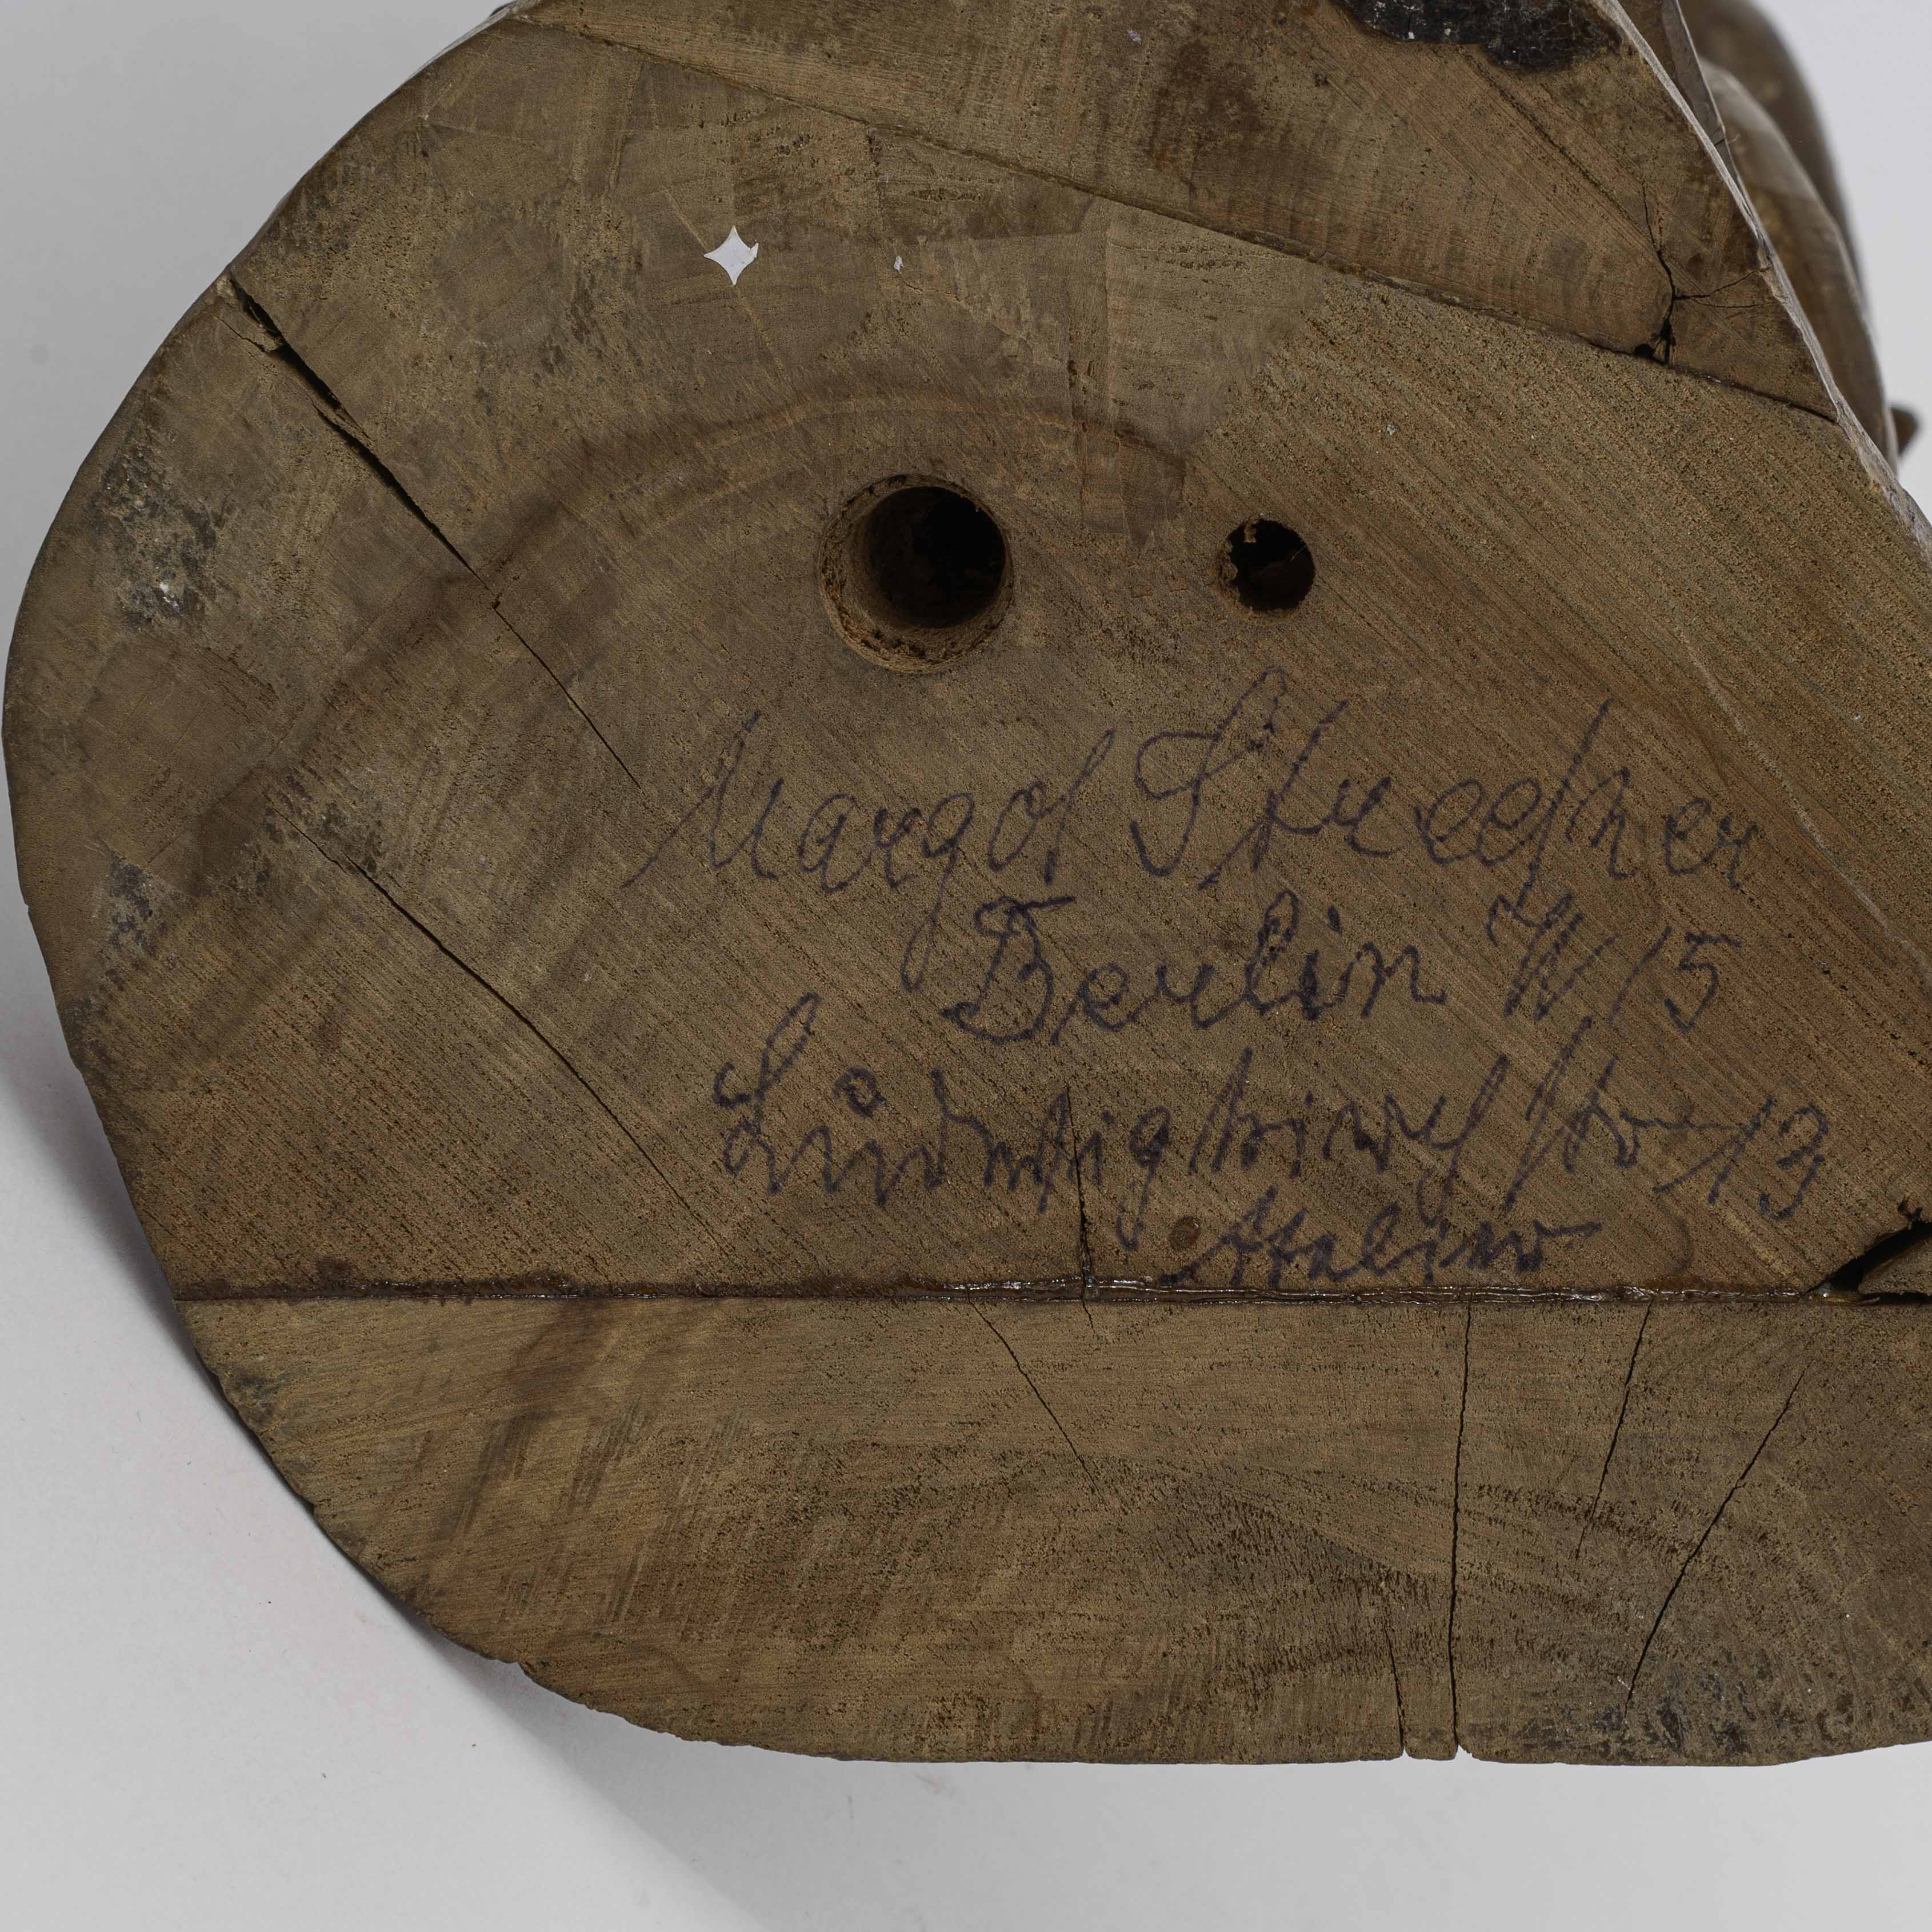 Margot Streeßner
Berlin W 15
Lüdwigkirchstr 13
Atelier